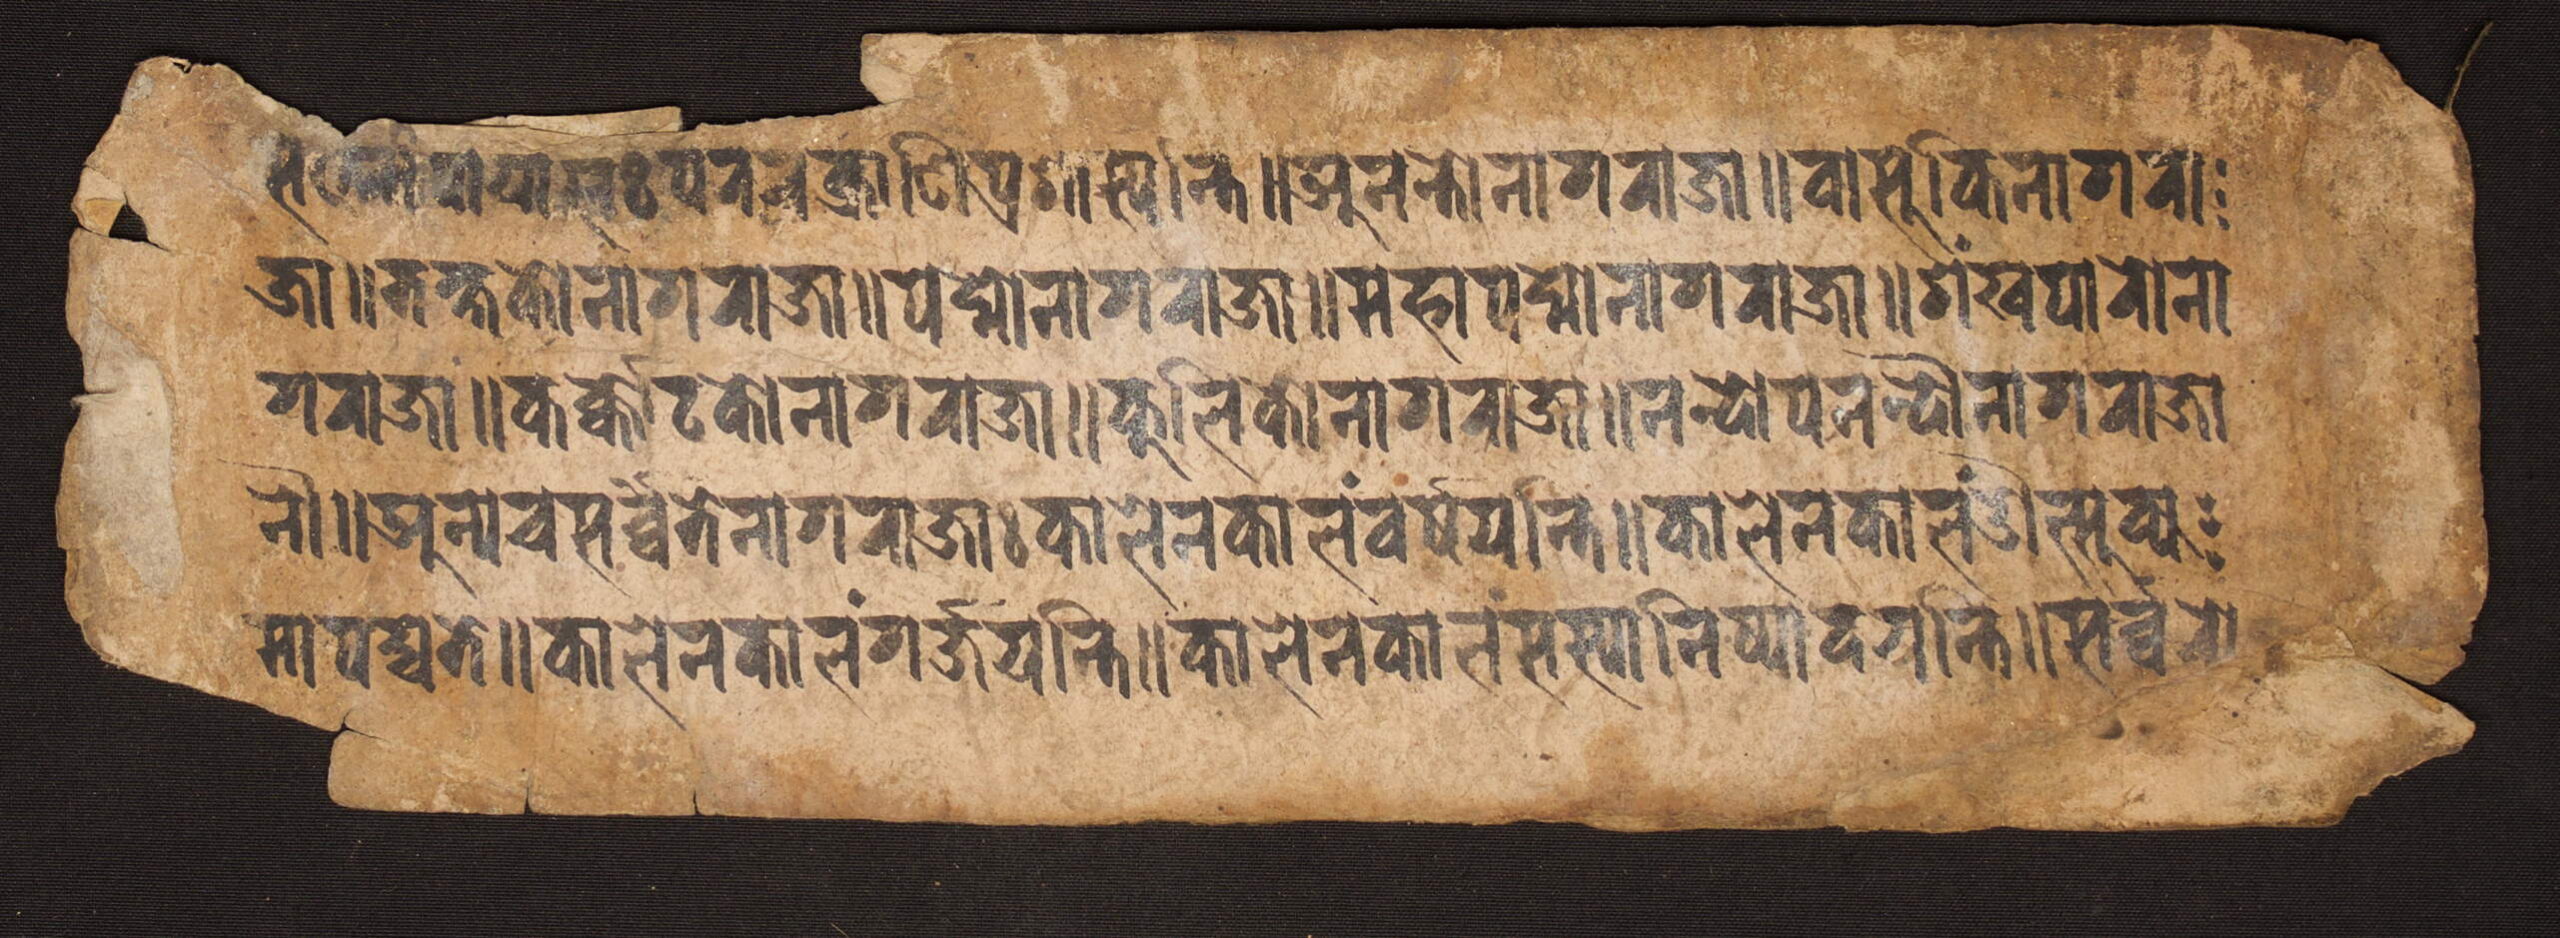 परचक्राणिप्रशाम्यन्ति॥अनन्तोनागराजा॥वासुकिनागरा
जा॥तक्षकोनागराजा॥पद्मोनागराजा॥महापद्मोनागराजा॥शंखपालोना
गराजा॥कर्क्कोटकोनागराजा॥कुलिकोनागराजा॥नन्दोपनन्दौनागराजा
नौ॥अन्याचसर्व्वेतेनागराजाःकालेनकालंवर्षयन्ति॥कालेनकालंऔत्सुक्य
मापद्यते॥कालेनकालंगर्ज्जयन्ति॥कालेनकालंसस्यानिष्पादयन्ति॥सर्व्वरो